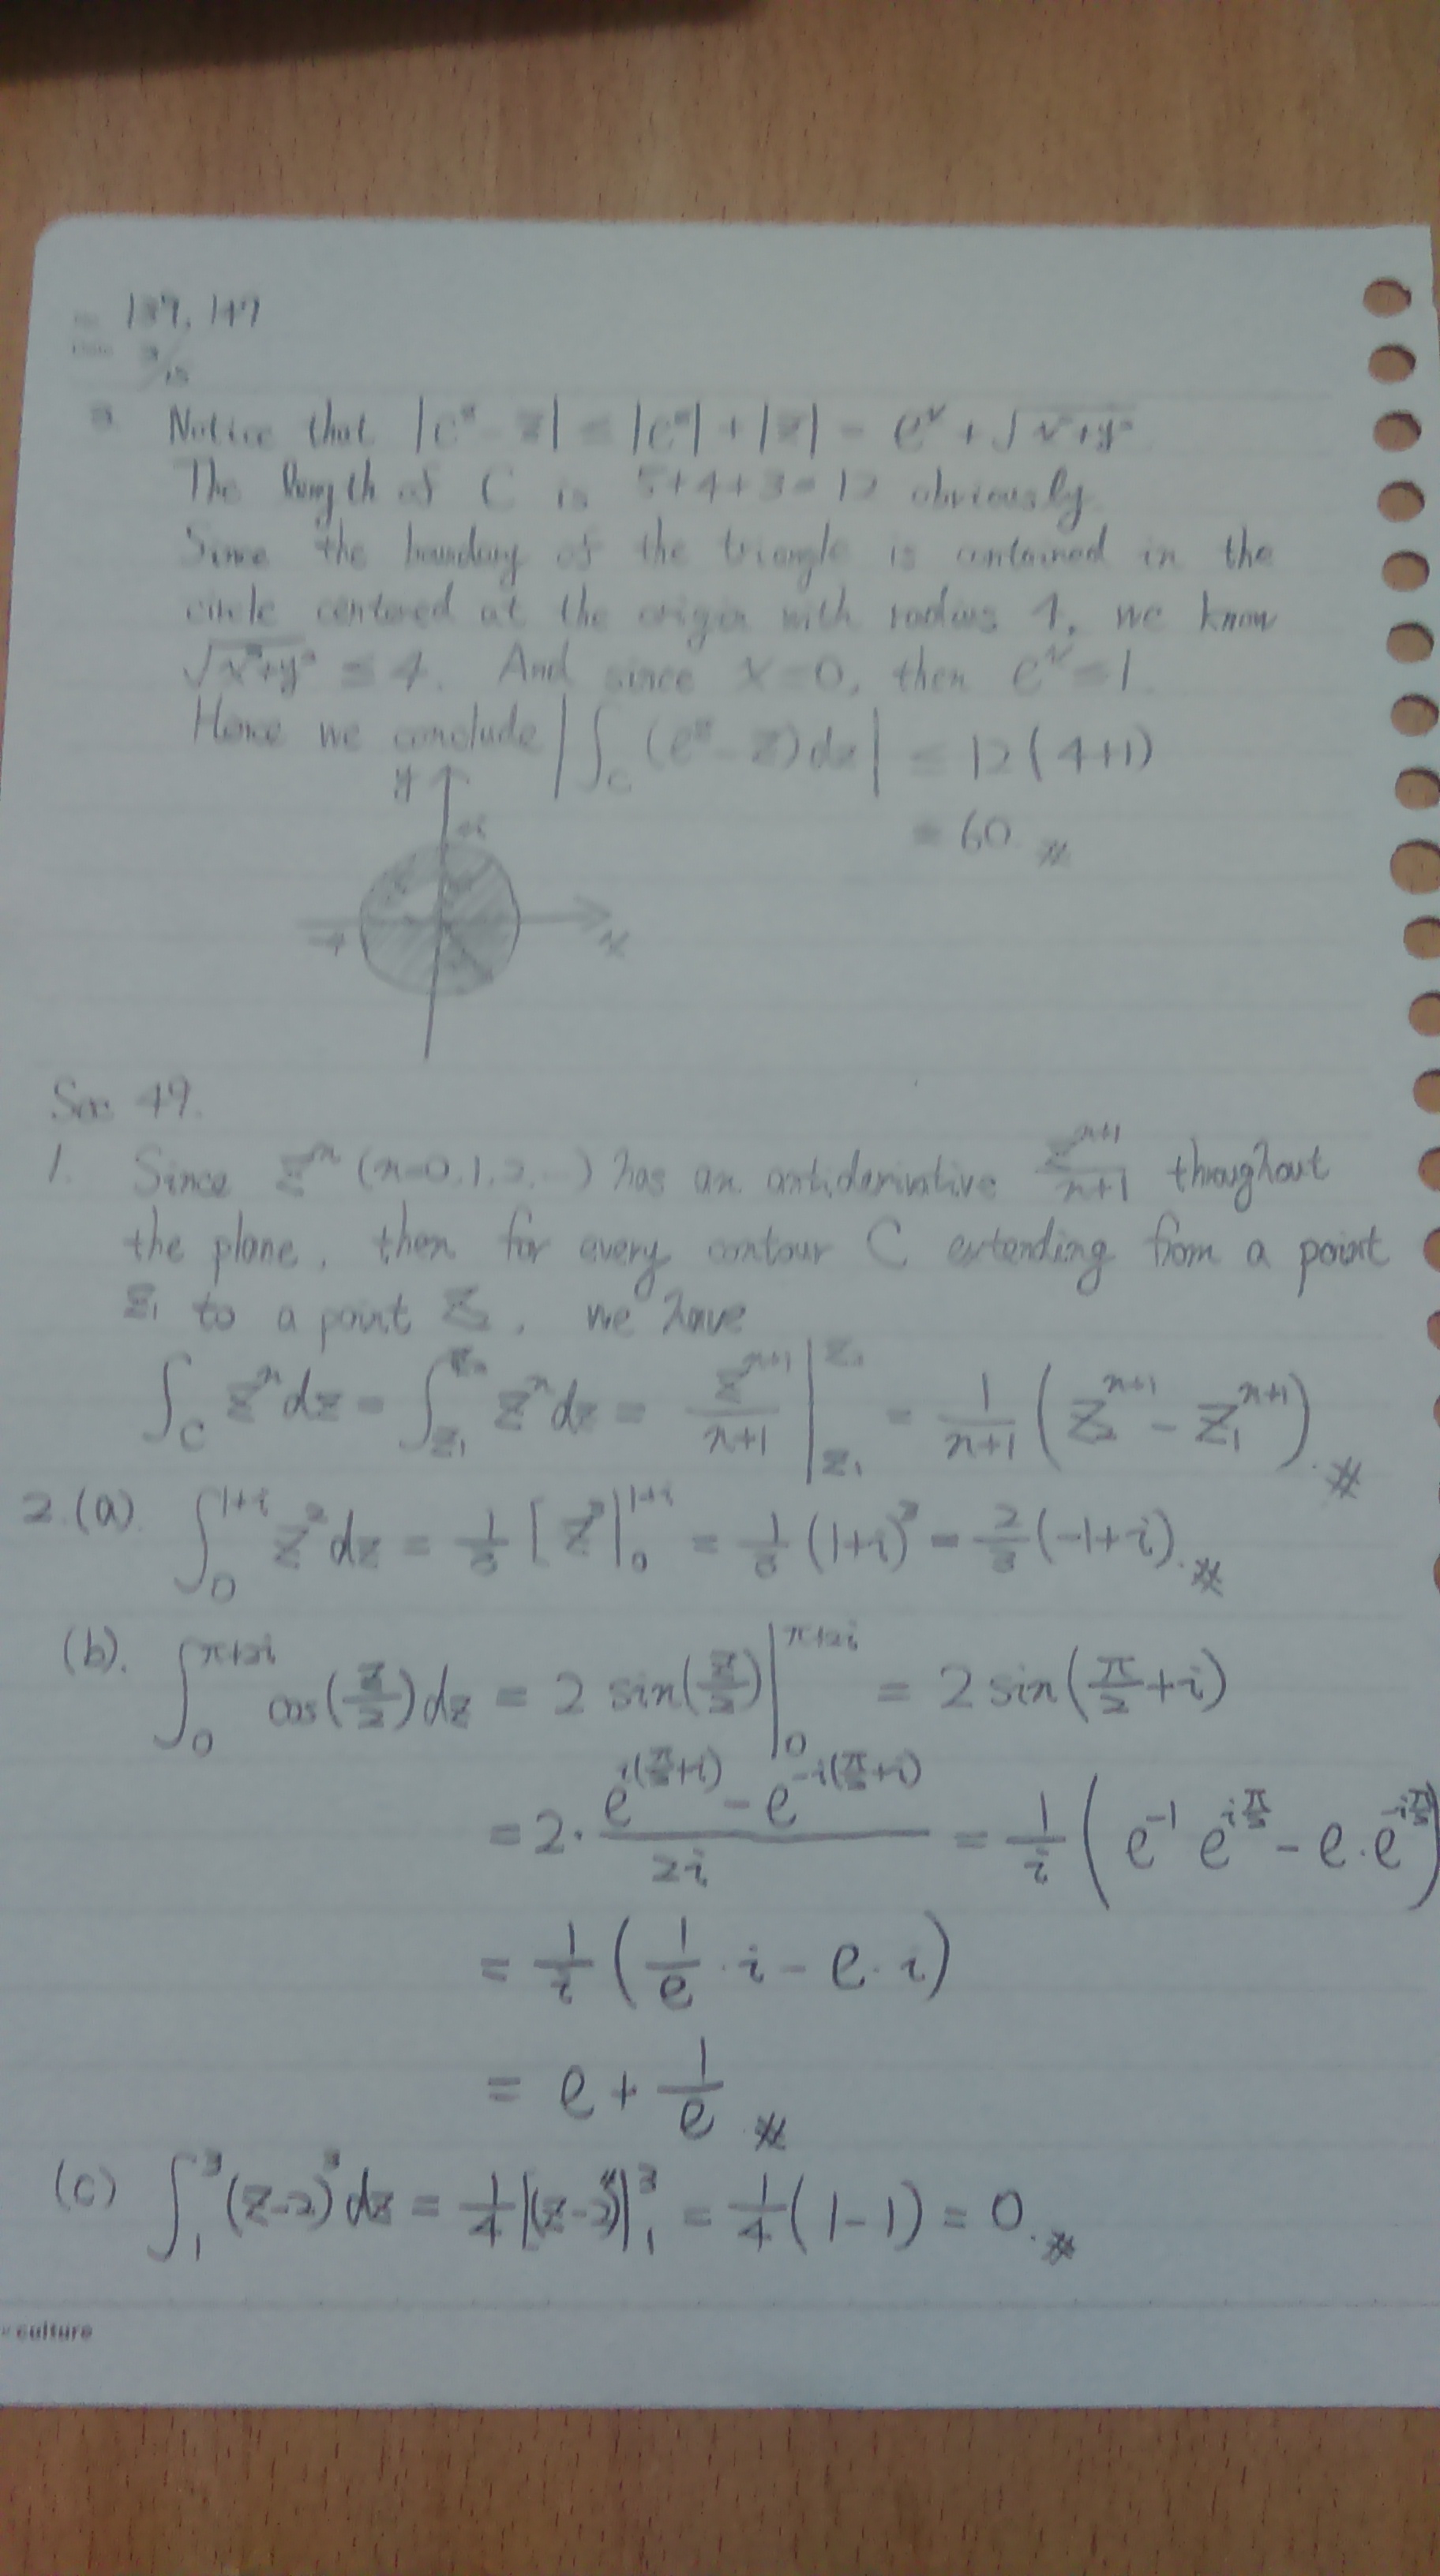 137, 147
3. Notice that |e^z - z| ≤ |e^z| + |z| = e^x + √(x²+y²)
The length of C is 5+4+3=12 obviously.
Since the boundary of the triangle is contained in the
circle centered at the origin with radius 4, we know
√(x²+y²) ≤ 4. And since x=0, then e^x=1.
Hence we conclude |∫_C (e^z - z) dz| ≤ 12(4+1)
= 60 #
y
-4 x
Sec 49.
1. Since z^n (n=0,1,2,...) has an antiderivative z^(n+1)/(n+1) throughout
the plane, then for every contour C extending from a point
z₁ to a point z₂, we have
∫_C z^n dz = ∫_{z₁}^{z₂} z^n dz = z^(n+1)/(n+1) |_{z₁}^{z₂} = 1/(n+1) (z₂^(n+1) - z₁^(n+1)). #
2.(a). ∫_0^{1+i} z² dz = 1/3 [z³|_0^{1+i} = 1/3 (1+i)³ = 2/3 (-1+i). #
(b). ∫_0^{π+2i} cos(z/2) dz = 2 sin(z/2)|_0^{π+2i} = 2 sin(π/2+i)
= 2· (e^{i(π/2+i)} - e^{-i(π/2+i)})/2i = 1/i (e^{-1} e^{iπ/2} - e·e^{-iπ/2})
= 1/i (1/e · i - e · i)
= e + 1/e #
(c) ∫_1^3 (z-2)³ dz = 1/4 |(z-2)⁴|_1^3 = 1/4 (1-1) = 0. #
culture